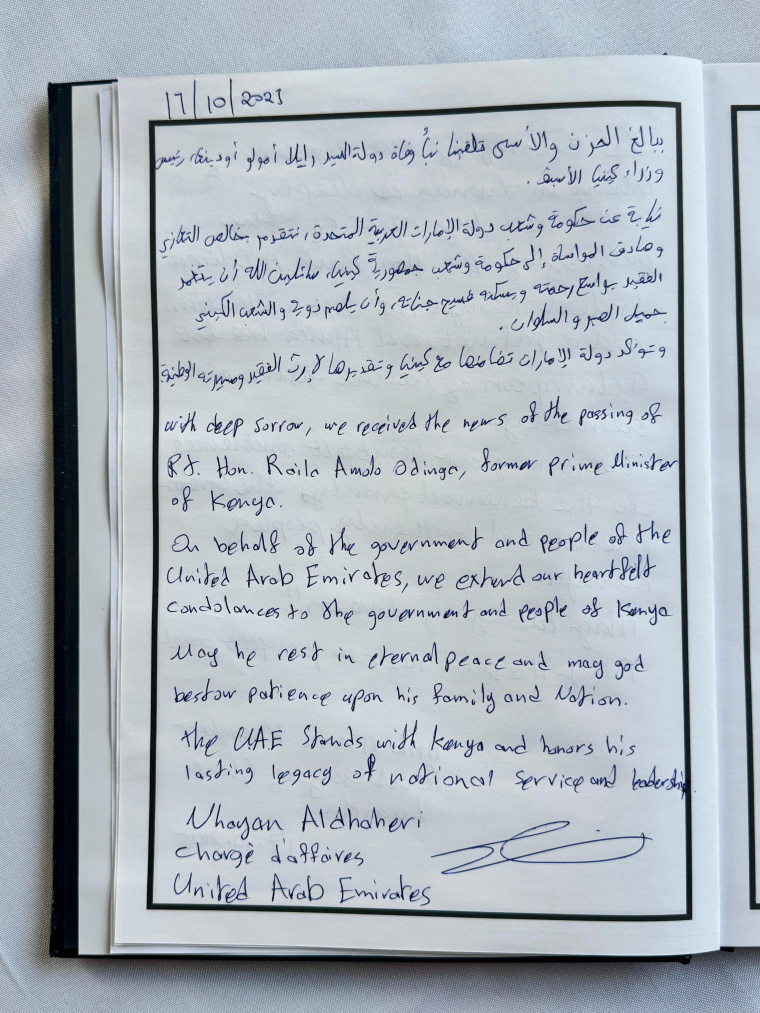 17/10/2025
ببالغ الحزن والأسى تلقينا نبأ وفاة دولة السيد رايلا أمولو أودينغا، رئيس
وزراء كينيا الأسبق.
نيابة عن حكومة وشعب دولة الإمارات العربية المتحدة، نتقدم بخالص التعازي
وصادق المواساة إلى حكومة وشعب جمهورية كينيا، سائلين الله أن يتغمد
الفقيد بواسع رحمته ويسكنه فسيح جناته، وأن يلهم ذويه والشعب الكيني
جميل الصبر والسلوان.
وتؤكد دولة الإمارات تضامنها مع كينيا وتقديرها لإرث الفقيد ومسيرته الوطنية.
with deep sorrow, we received the news of the passing of
Rt. Hon. Raila Amolo Odinga, former prime Minister
of Kenya.
On behalf of the government and people of the
United Arab Emirates, we extend our heartfelt
condolances to the government and people of Kenya
May he rest in eternal peace and may god
bestow patience upon his family and Nation.
the UAE Stands with Kenya and honors his
lasting legacy of national service and leadership.
Nhayan Aldhaheri
chargè d'affaires
United Arab Emirates